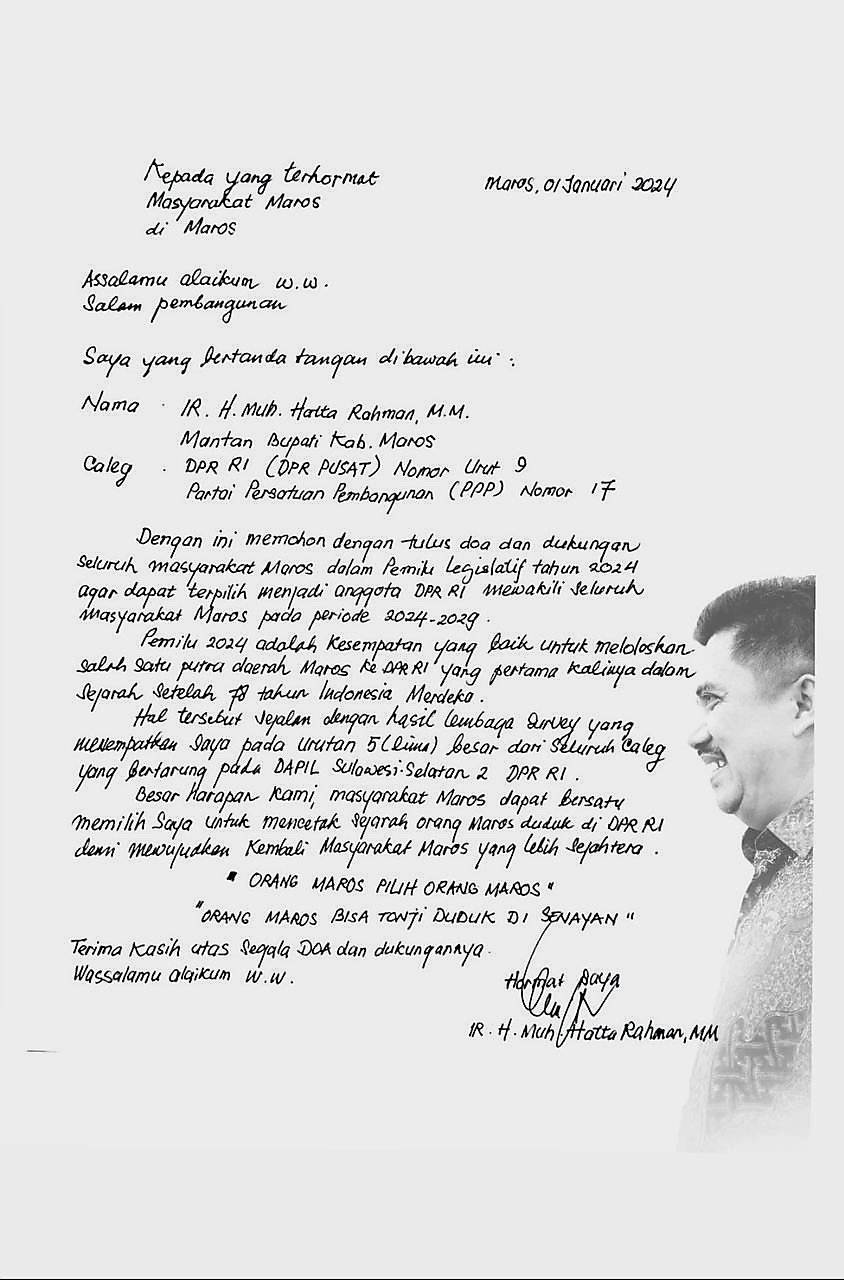 Kepada yang terhormat
Maros, 01 Januari 2024
Masyarakat Maros
di Maros
Assalamu alaikum w.w.
Salam pembangunan
Saya yang bertanda tangan dibawah ini :
Nama : IR. H. Muh. Hatta Rahman, M.M.
Mantan Bupati Kab. Maros
Caleg : DPR RI (DPR PUSAT) Nomor Urut 9
Partai Persatuan Pembangunan (PPP) Nomor 17
Dengan ini memohon dengan tulus doa dan dukungan
seluruh masyarakat Maros dalam Pemilu Legislatif tahun 2024
agar dapat terpilih menjadi anggota DPR RI mewakili seluruh
masyarakat Maros pada periode 2024-2029.
Pemilu 2024 adalah kesempatan yang baik untuk meloloskan
salah satu putra daerah Maros ke DPR RI yang pertama kalinya dalam
sejarah setelah 78 tahun Indonesia Merdeka.
Hal tersebut sejalan dengan hasil lembaga survey yang
menempatkan saya pada urutan 5 (lima) besar dari seluruh caleg
yang bertarung pada DAPIL Sulawesi-Selatan 2 DPR RI.
Besar Harapan Kami, masyarakat Maros dapat bersatu
memilih saya untuk mencetak sejarah orang Maros duduk di DPR RI
demi mewujudkan kembali Masyarakat Maros yang lebih sejahtera.
" ORANG MAROS PILIH ORANG MAROS "
"ORANG MAROS BISA TONJI DUDUK DI SENAYAN "
Terima kasih atas segala DOA dan dukungannya.
Wassalamu alaikum w.w.
Hormat saya
IR. H. Muh. Hatta Rahman, MM